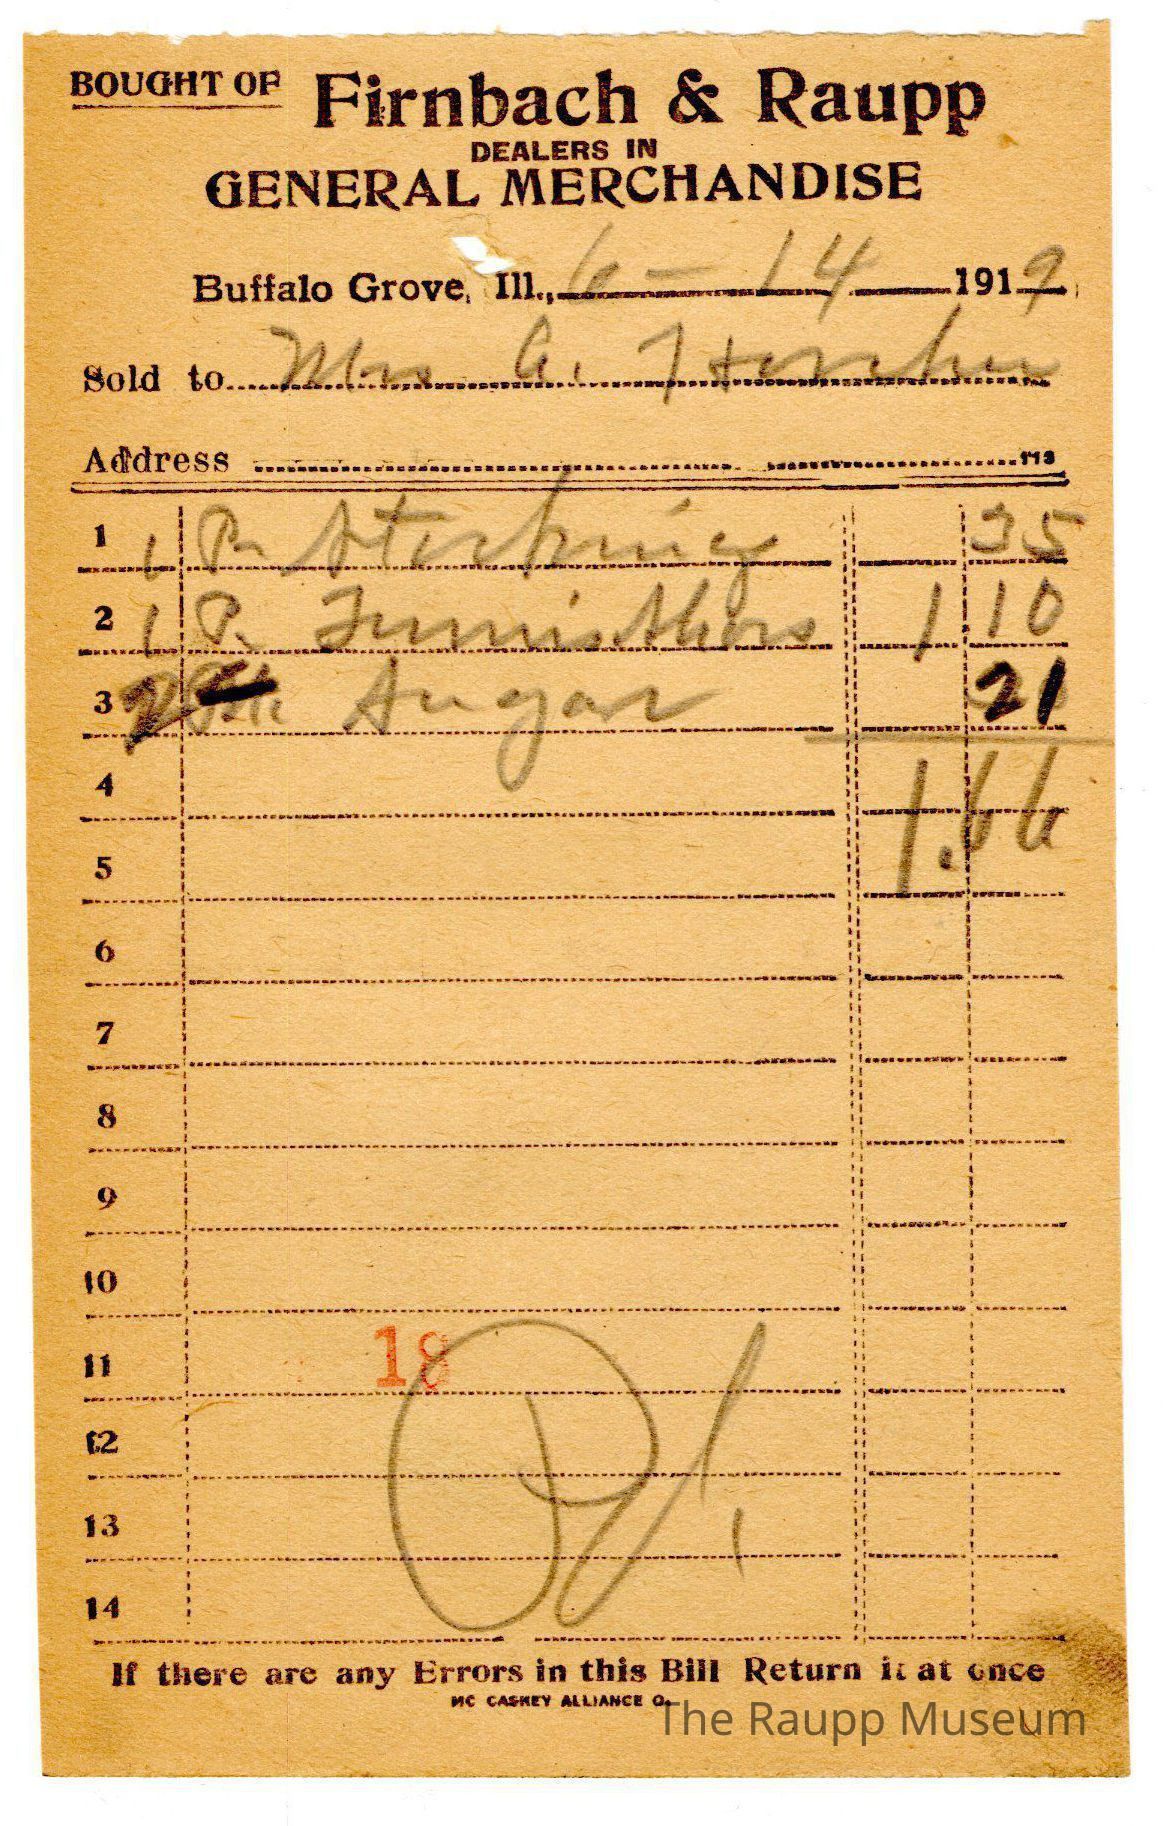 BOUGHT OF Firnbach & Raupp
DEALERS IN
GENERAL MERCHANDISE
Buffalo Grove, Ill., 6 - 14 1919
Sold to Mrs a.
Address
1 1 Pr Stocking 35
2 1 Pr Tennis Shoes 1 10
3 2 Sugar 21
4 1.66
5
6
7
8
9
10
11 18
12
13
14
If there are any Errors in this Bill Return it at once
MC CASKEY ALLIANCE O.
The Raupp Museum